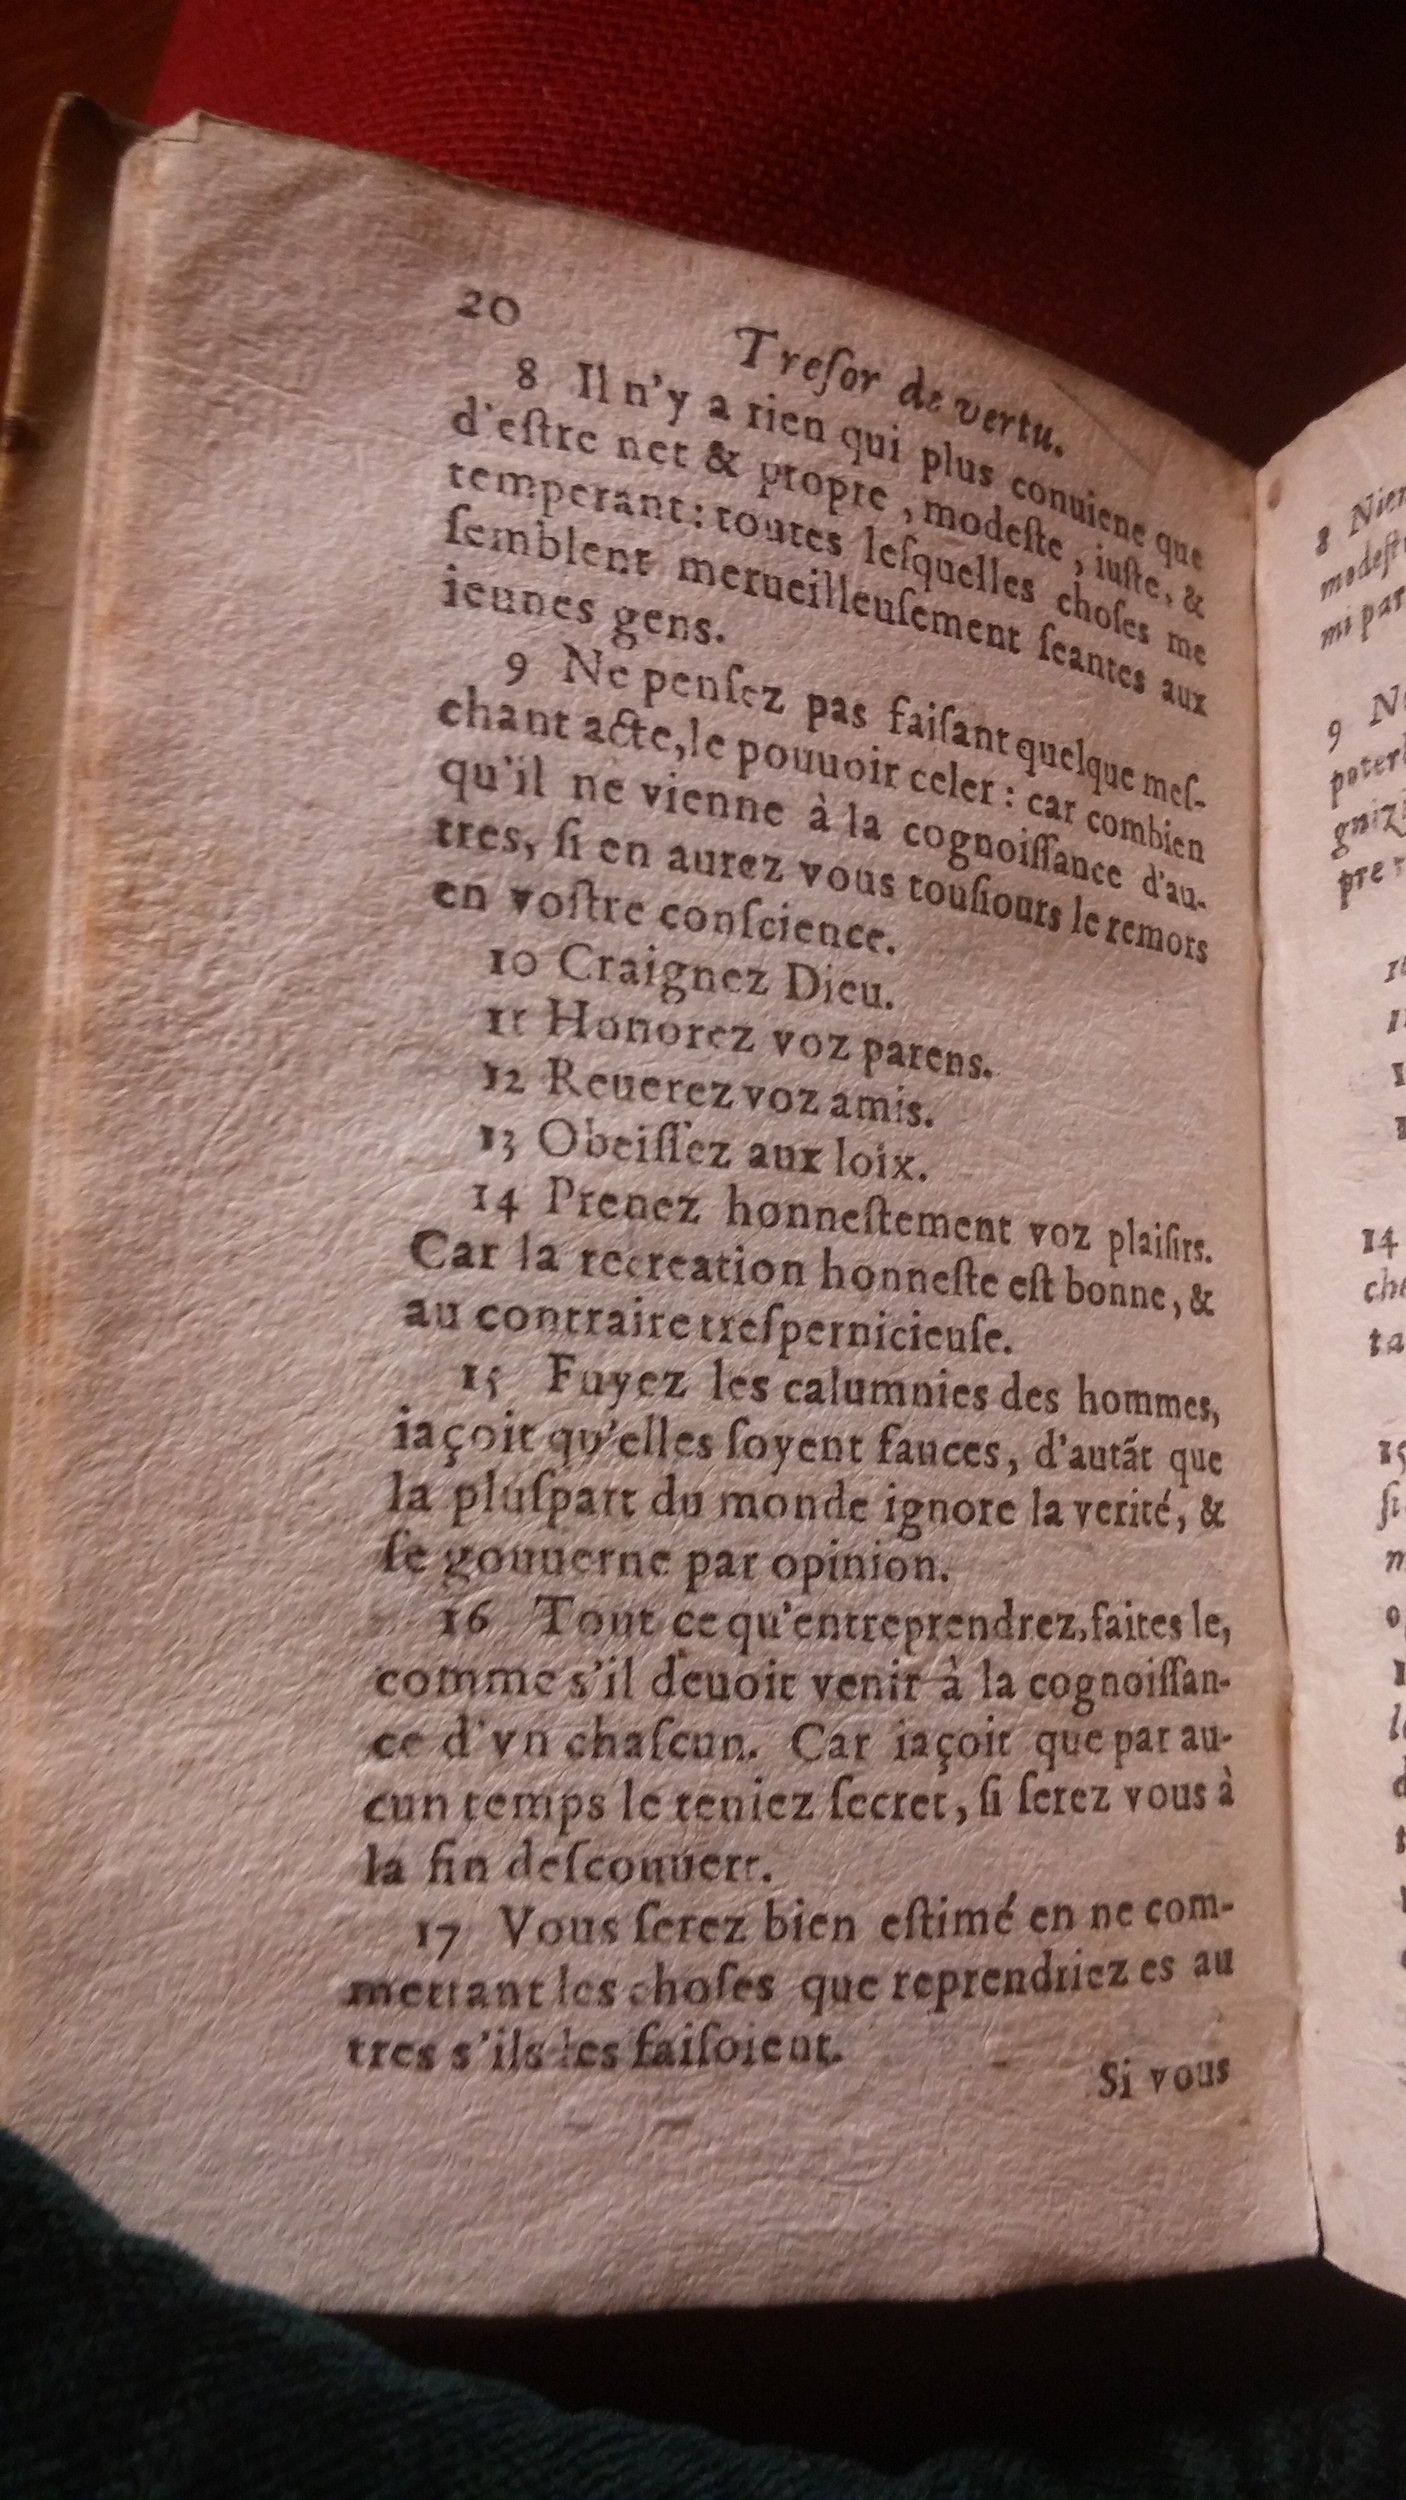 20
Treſor de vertu.
8 Il n'y a rien qui plus conuiene que
d'eſtre net & propre, modeſte, iuſte, &
temperant: toutes leſquelles choſes me
ſemblent merueilleuſement ſeantes aux
ieunes gens.
9 Ne penſez pas faiſant quelque meſ-
chant acte, le pouuoir celer: car combien
qu'il ne vienne à la cognoiſſance d'au-
tres, ſi en aurez vous touſiours le remors
en voſtre conſcience.
10 Craignez Dieu.
11 Honorez voz parens.
12 Reuerez voz amis.
13 Obeiſſez aux loix.
14 Prenez honneſtement voz plaiſirs.
Car la recreation honneſte eſt bonne, &
au contraire treſpernicieuſe.
15 Fuyez les calumnies des hommes,
iaçoit qu'elles ſoyent fauces, d'autãt que
la pluſpart du monde ignore la verité, &
ſe gouuerne par opinion.
16 Tout ce qu'entreprendrez, faites le,
comme s'il deuoit venir à la cognoiſſan-
ce d'vn chaſcun. Car iaçoit que par au-
cun temps le teniez ſecret, ſi ſerez vous à
la fin deſcouuert.
17 Vous ſerez bien eſtimé en ne com-
mettant les choſes que reprendriez es au
tres s'ils les faiſoient.
Si vous
8
modeſt
mi par
9
10
11
14
ta
15